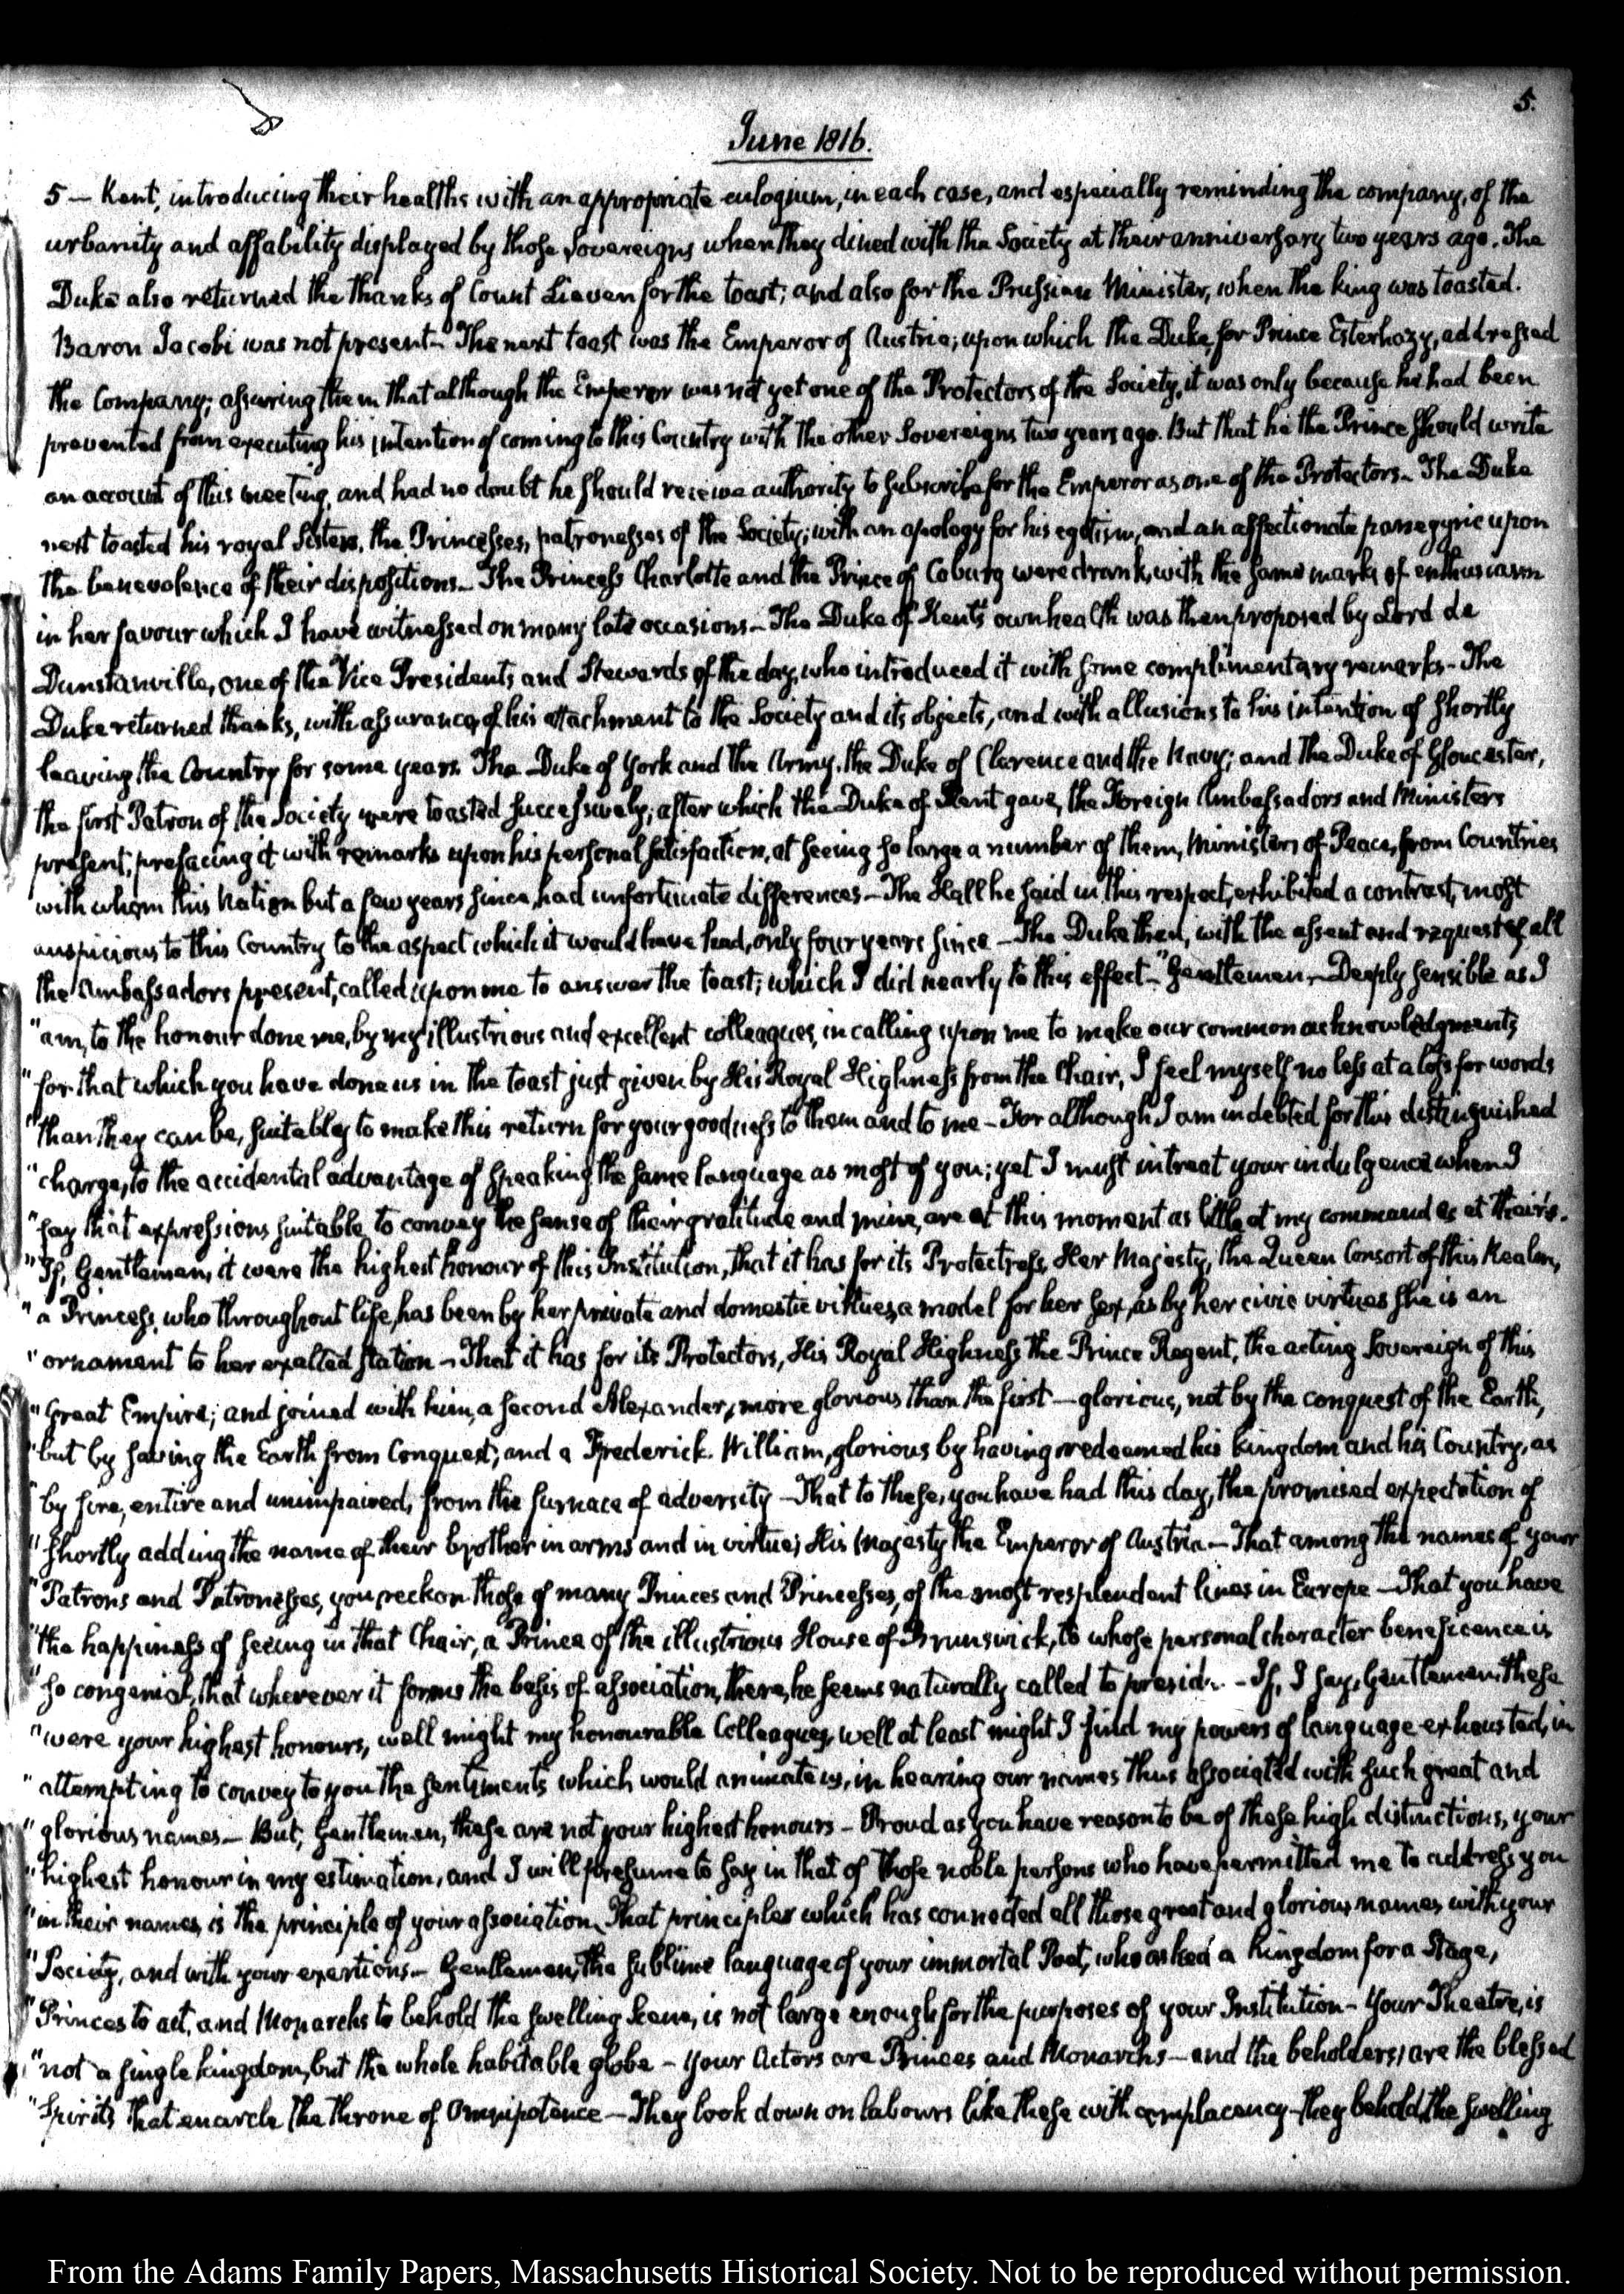 5.
June 1816.
5 — Kent, introducing their healths with an appropriate eulogium, in each case, and especially reminding the company, of the
urbanity and affability displayed by those Sovereigns when they dined with the Society at their anniversary two years ago. The
Duke also returned the thanks of Count Lieven for the toast; and also for the Prussian Minister, when the king was toasted.
Baron Jacobi was not present. The next toast was the Emperor of Austria; upon which the Duke, for Prince Esterhazy, addressed
the Company; assuring them that although the Emperor was not yet one of the Protectors of the Society, it was only because he had been
prevented from executing his intention of coming to this Country with the other Sovereigns two years ago. But that he the Prince should write
an account of this meeting, and had no doubt he should receive authority to subscribe for the Emperor as one of the Protectors. The Duke
next toasted his royal Sisters, the Princesses, patronesses of the Society; with an apology for his egotism, and an affectionate panegyric upon
the benevolence of their dispositions. The Princess Charlotte and the Prince of Coburg were drank, with the same marks of enthusiasm
in her favour which I have witnessed on many late occasions. The Duke of Kent's own health was then proposed by Lord de
Dunstanville, one of the Vice Presidents and Stewards of the day, who introduced it with some complimentary remarks. The
Duke returned thanks, with assurances of his attachment to the Society and its objects, and with allusions to his intention of shortly
leaving the Country for some years. The Duke of York and the Army, the Duke of Clarence and the Navy; and the Duke of Gloucester,
the first Patron of the Society were toasted successively; after which the Duke of Kent gave, the Foreign Ambassadors and Ministers
present, prefacing it with remarks upon his personal satisfaction, at seeing so large a number of them, Ministers of Peace, from Countries
with whom this Nation but a few years since, had unfortunate differences — The Hall he said in this respect, exhibited a contrast, most
auspicious to this Country to the aspect which it would have had, only four years since — The Duke then, with the assent and request of all
the Ambassadors present, called upon me to answer the toast; which I did nearly to this effect — "Gentlemen — Deeply sensible as I
"am, to the honour done me, by my illustrious and excellent colleagues, in calling upon me to make our common acknowledgments,
"for that which you have done us in the toast just given by His Royal Highness from the Chair, I feel myself no less at a loss for words
"than they can be, suitably to make this return for your goodness to them and to me — For although I am indebted for this distinguished
"charge, to the accidental advantage of speaking the same language as most of you; yet I must intreat your indulgence when I
"say that expressions suitable to convey the sense of their gratitude and mine, are at this moment as little at my command as at their's.
"If, Gentlemen, it were the highest honour of this Institution, that it has for its Protectress, Her Majesty, the Queen Consort of this Realm,
"a Princess, who throughout life, has been by her private and domestic virtues, a model for her sex, as by her civic virtues she is an
"ornament to her exalted station — That it has for its Protectors, His Royal Highness the Prince Regent, the acting Sovereign of this
"Great Empire; and joined with him, a second Alexander, more glorious than the first — glorious, not by the conquest of the Earth,
"but by saving the Earth from Conquest; and a Frederick William, glorious by having redeemed his kingdom and his Country, as
"by fire, entire and unimpaired, from the furnace of adversity — That to these, you have had this day, the promised expectation of
"shortly adding the name of their brother in arms and in virtue; His Majesty the Emperor of Austria — That among the names of your
"Patrons and Patronesses, you reckon those of many Princes and Princesses, of the most resplendent lines in Europe — That you have
"the happiness of seeing in that Chair, a Prince of the illustrious House of Brunswick, to whose personal character beneficence is
"so congenial, that wherever it forms the basis of association, there, he seems naturally called to preside — If, I say, Gentlemen these
"were your highest honours, well might my honourable Colleagues, well at least might I find my powers of language exhausted, in
"attempting to convey to you the sentiments which would animate us, in hearing our names thus associated with such great and
"glorious names — But, Gentlemen, these are not your highest honours — Proud as you have reason to be of these high distinctions, your
"highest honour in my estimation, and I will presume to say in that of those noble persons who have permitted me to address you
"in their names, is the principle of your association. That principle which has connected all those great and glorious names with your
"Society, and with your exertions — Gentlemen, the sublime language of your immortal Poet, who asked a kingdom for a Stage,
"Princes to act, and Monarchs to behold the swelling Scene, is not large enough for the purposes of your Institution — Your Theatre, is
"not a single kingdom, but the whole habitable globe — Your Actors are Princes and Monarchs — and the beholders, are the blessed
"Spirits that encircle the throne of Omnipotence — They look down on labours like these with complacency — they behold the swelling
From the Adams Family Papers, Massachusetts Historical Society. Not to be reproduced without permission.